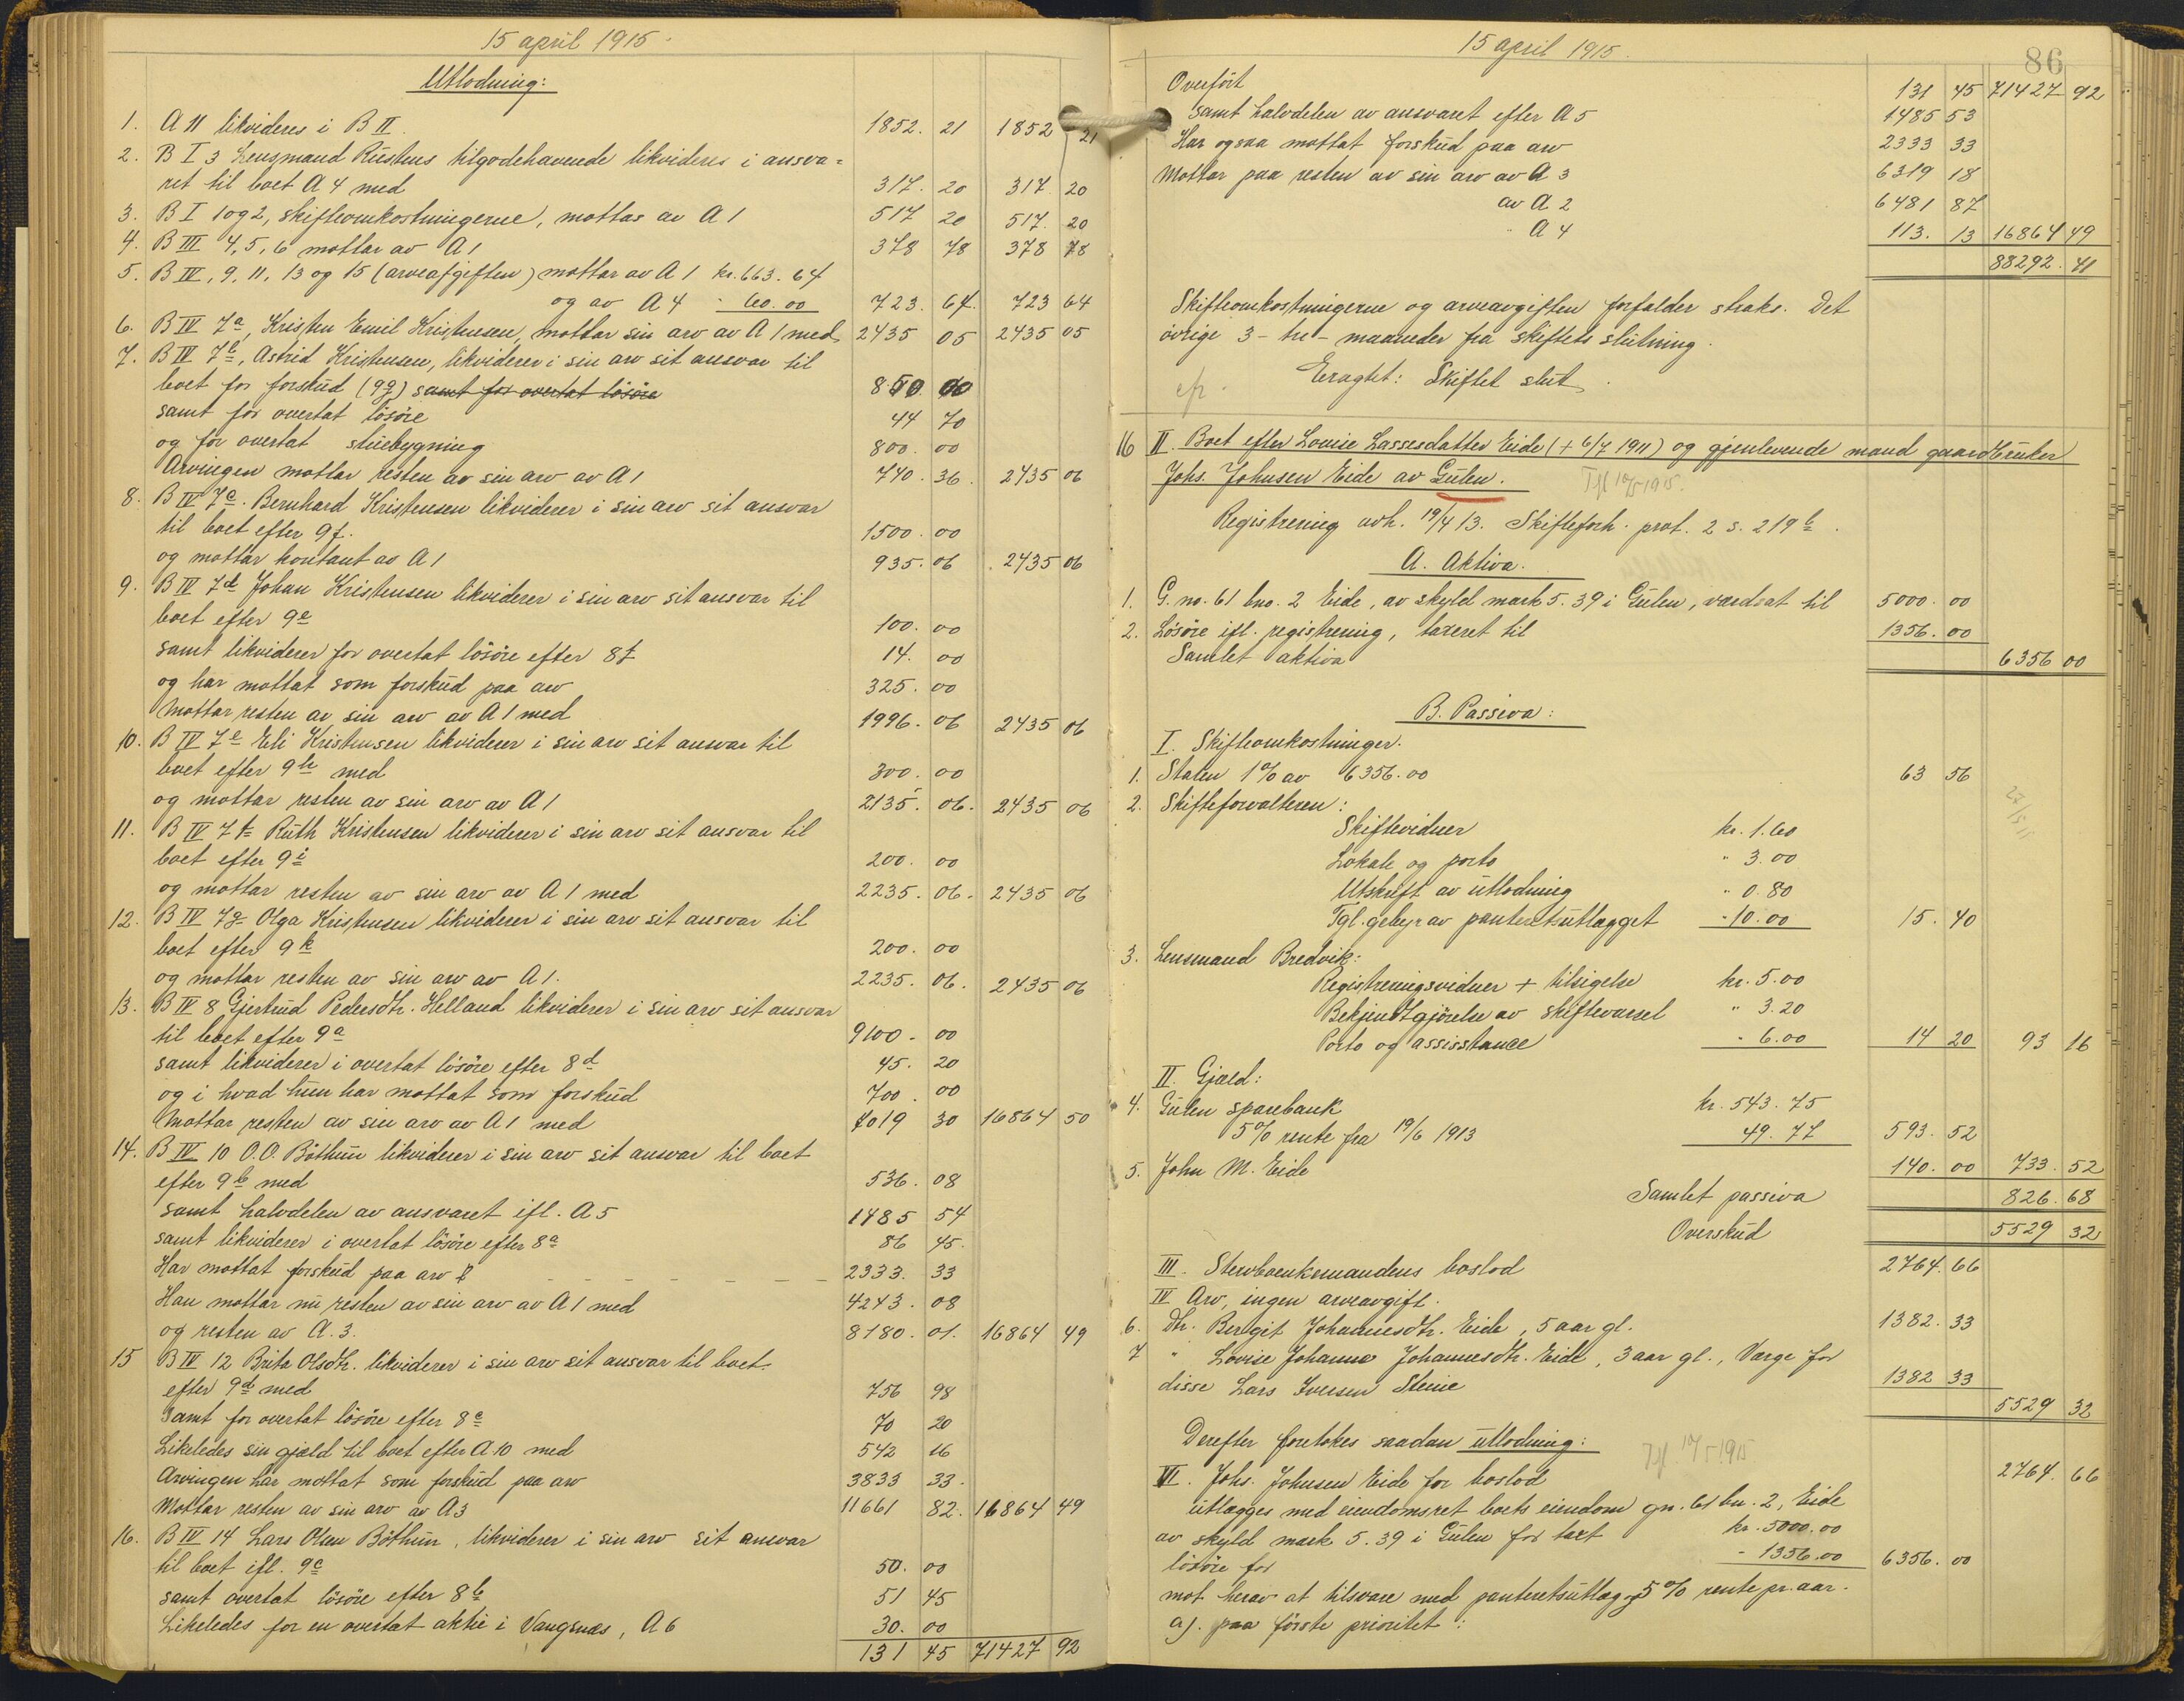 15 april 1915.
Utlodning:
1. A 11 likvideres i B II. 1852. 21 1852 21
2. B I 3 Lensmand Rustens tilgodehavende likvideres i ansva=
ret til boet A 4 med 317. 20 317. 20
3. B I 1 og 2, skifteomkostningerne, mottas av A 1 517 20 517. 20
4. B III 4, 5, 6 mottar av A 1 378 78 378 78
5. B IV, 9, 11, 13 og 15 (arveafgiften) mottar av A 1 kr. 663. 64
og av A 4 - 60. 00 723. 64. 723 64
6. B IV 7a, Kristen Emil Kristensen, mottar sin arv av A 1 med 2435 05 2435 05
7. B IV 7b, Astrid Kristensen, likviderer i sin arv sit ansvar til
boet for forskud (9g) samt for overtat lösöre 850. 00
samt for overtat lösöre 44 70
og for overtat stuebygning 800. 00
Arvingen mottar resten av sin arv av A 1 740. 36. 2435 06
8. B IV 7c. Bernhard Kristensen likviderer i sin arv sit ansvar
til boet efter 9f. 1500. 00
og mottar kontant av A 1 935. 06. 2435 06
9. B IV 7d Johan Kristensen likviderer i sin arv sit ansvar til
boet efter 9e 100. 00
samt likviderer for overtat lösöre efter 8f 14. 00
og har mottat som forskud paa arv 325. 00
Mottar resten av sin arv av A 1 med 1996. 06 2435 06
10. B IV 7e Eli Kristensen likviderer i sin arv sit ansvar til
boet efter 9h med 300. 00
og mottar resten av sin arv av A 1 2135. 06. 2435 06
11. B IV 7f Ruth Kristensen likviderer i sin arv sit ansvar til
boet efter 9i 200. 00
og mottar resten av sin arv av A 1 med 2235. 06. 2435 06
12. B IV 7g Olga Kristensen likviderer i sin arv sit ansvar til
boet efter 9k 200. 00
og mottar resten av sin arv av A 1. 2235. 06. 2435 06
13. B IV 8 Gjertrud Pedersdtr. Helland likviderer i sin arv sit ansvar
til boet efter 9a 9100. 00
samt likviderer i overtat lösöre efter 8d 45. 20
og i hvad hun har mottat som forskud 700. 00
Mottar resten av sin arv av A 1 med 7019 30 16864 50
14. B IV 10 O.O. Böthun likviderer i sin arv sit ansvar til boet
efter 9b med 536. 08
samt halvdelen av ansvaret ifl. A 5 1485 54
samt likviderer i overtat lösöre efter 8a 86 45.
Har mottat forskud paa arv 2333. 33
Han mottar nu resten av sin arv av A 1 med 4243. 08
og resten av A. 3. 8180. 01. 16864 49
15 B IV 12 Brita Olsdtr. likviderer i sin arv sit ansvar til boet
efter 9d med 756 98
Samt for overtat lösöre efter 8c 70 20
Likeledes sin gjæld til boet efter A 10 med 542 16
Arvingen har mottat som forskud paa arv 3833 33.
Mottar resten av sin arv av A 3 11661 82. 16864 49
16. B IV 14 Lars Olsen Böthun, likviderer i sin arv sit ansvar
til boet ifl. 9c 50. 00
samt overtat lösöre efter 8b 51 45
Likeledes for en overtat aktie i Vangsnes, A 6 30. 00
131 45 71427 92
15 april 1915.
86
Overfört 131 45 71427 92
samt halvdelen av ansvaret efter A 5 1485 53
Har ogsaa mottat forskud paa arv 2333 33
Mottar paa resten av sin arv av A 3 6319 18
av A 2 6481 87
" A 4 113. 13 16864 49
88292. 41
Skifteomkostningerne og arveavgiften forfalder straks. Det
övrige 3 - tre - maaneder fra skiftets slutning.
Eragtet: Skiftet slut.
cfr.
16 II. Boet efter Louise Lassesdatter Eide (+ 6/7 1911) og gjenlevende mand gaardbruker
Johs. Johnsen Eide av Gulen.
Registrering avh. 19/4 13. Skifteforh. prot. 2 s. 219b.
A. Aktiva.
1. G. no. 61 bno. 2 Eide, av skyld mark 5. 39 i Gulen, værdsat til 5000. 00
2. Lösöre ifl. registrering, taxeret til 1356. 00
Samlet aktiva 6356 00
B. Passiva:
I. Skifteomkostninger.
1. Staten 1% av 6356. 00 63 56
2. Skifteforvalteren:
Skiftevidner kr. 1.60
Lokale og porto " 3. 00
Utskrift av utlodning " 0. 80
Tgl. gebyr av panteretsutlægget - 10. 00 15. 40
3. Lensmand Bredvik:
Registreringsvidner + tilsigelse kr. 5. 00
Bekjendtgjörelse av skiftevarsel " 3. 20
Porto og assisstance - 6. 00 14 20 93 16
II. Gjæld:
4. Gulen sparebank kr. 543. 75
5% rente fra 19/6 1913 49. 77 593. 52
5. John M. Eide 140. 00 733. 52
Samlet passiva 826. 68
Overskud 5529 32
III. Stervboenkemandens boslod 2764. 66
IV Arv, ingen arveavgift.
6. Dtr. Bergit Johannesdtr. Eide, 5 aar gl. 1382. 33
7 " Lovise Johanne Johannesdtr. Eide, 3 aar gl., Værge for
disse Lars Iversen Steine 1382 33
5529 32
Derefter foretokes saadan utlodning:
VI. Johs. Johnsen Eide for boslod 2764. 66
utlægges med eiendomsret boets eiendom gn. 61 bn. 2, Eide
av skyld mark 5. 39 i Gulen for taxt kr. 5000. 00
lösöre for - 1356. 00 6356. 00
mot herav at tilsvare med panteretsutlæg og 5% rente pr. aar.
a). paa förste prioritet: